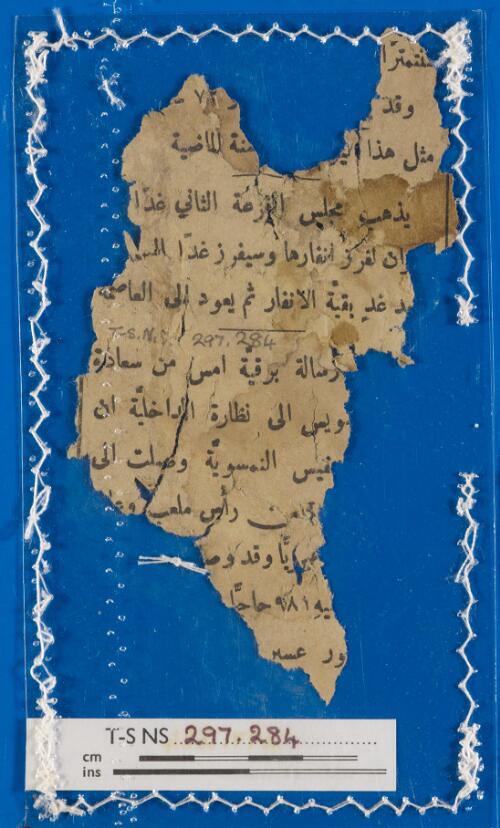 وقد ٧٨
مثل هذا الماضية
يذهب مجلس القرعة الثاني غدًا
ان لفرز انفارها وسيفرز غدًا
غدٍ بقيَّة الانفار ثم يعود الى
T-S.N.S. 297.284
رسالة برقيَّة امس من سعادة
ويس الى نظارة الداخليَّة ان
فيس النمسويَّة وصلت الى
من رأس ملعب
يًّا وقد
٩٨١ حاجًّا
ور عسير
T-S NS 297.284
cm
ins